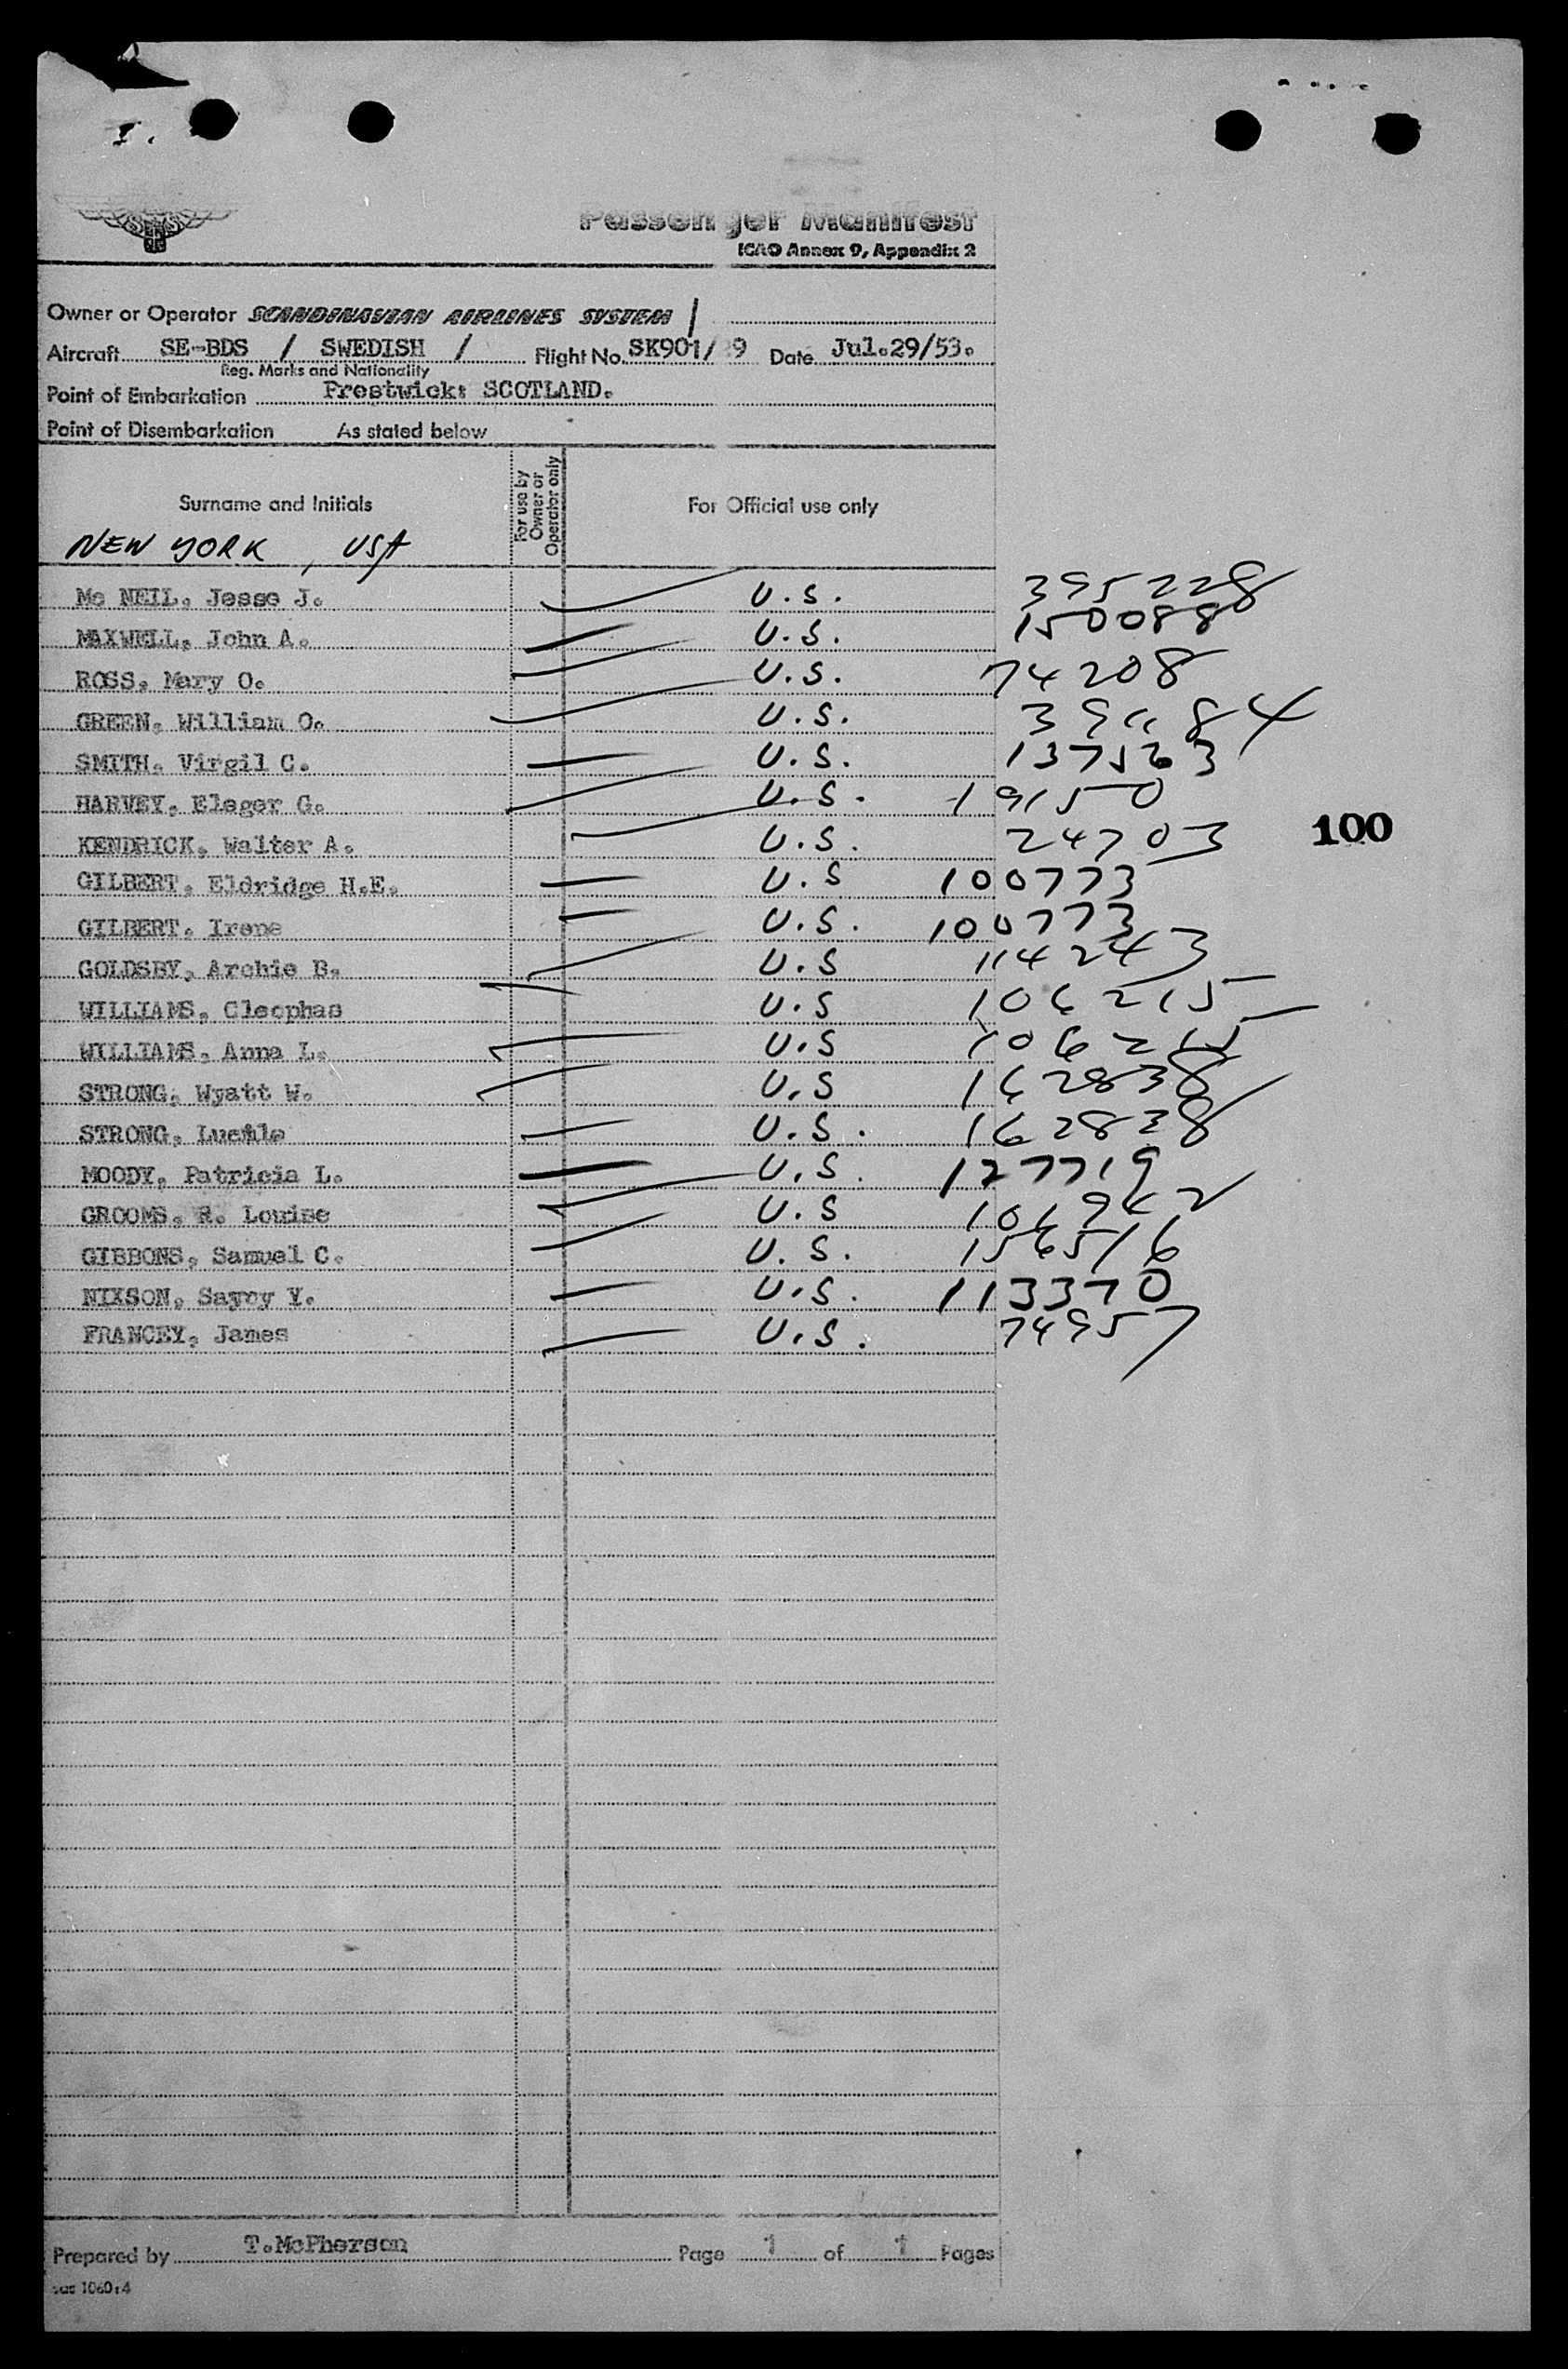 I.
SAS
Passenger Manifest
ICAO Annex 9, Appendix 2
Owner or Operator SCANDINAVIAN AIRLINES SYSTEM /
Aircraft SE-BDS / SWEDISH / Flight No. SK901/ 9 Date Jul.29/53.
Reg. Marks and Nationality
Point of Embarkation Prestwick: SCOTLAND.
Point of Disembarkation As stated below
Surname and Initials For use by Owner or Operator only For Official use only
NEW YORK, USA
Mc NEIL, Jesse J. U.S. 395228
MAXWELL, John A. U.S. 150088
ROSS, Mary O. U.S. 74208
GREEN, William O. U.S. 391184
SMITH, Virgil C. U.S. 137563
HARVEY, Eleger G. U.S. 19150
KENDRICK, Walter A. U.S. 24703 100
GILBERT, Eldridge H.E. U.S 100773
GILBERT, Irene U.S. 100773
GOLDSBY, Archie B. U.S 114243
WILLIAMS, Cleophas U.S 106215
WILLIAMS, Anna L. U.S 106215
STRONG, Wyatt W. U.S 162838
STRONG, Lucile U.S. 162838
MOODY, Patricia L. U.S. 127719
GROOMS, R. Louise U.S 101942
GIBBONS, Samuel C. U.S. 156516
NIXSON, Y. U.S. 113370
FRANCEY, James U.S. 74957
Prepared by T.McPherson Page 1 of 1 Pages
sas 1060:4